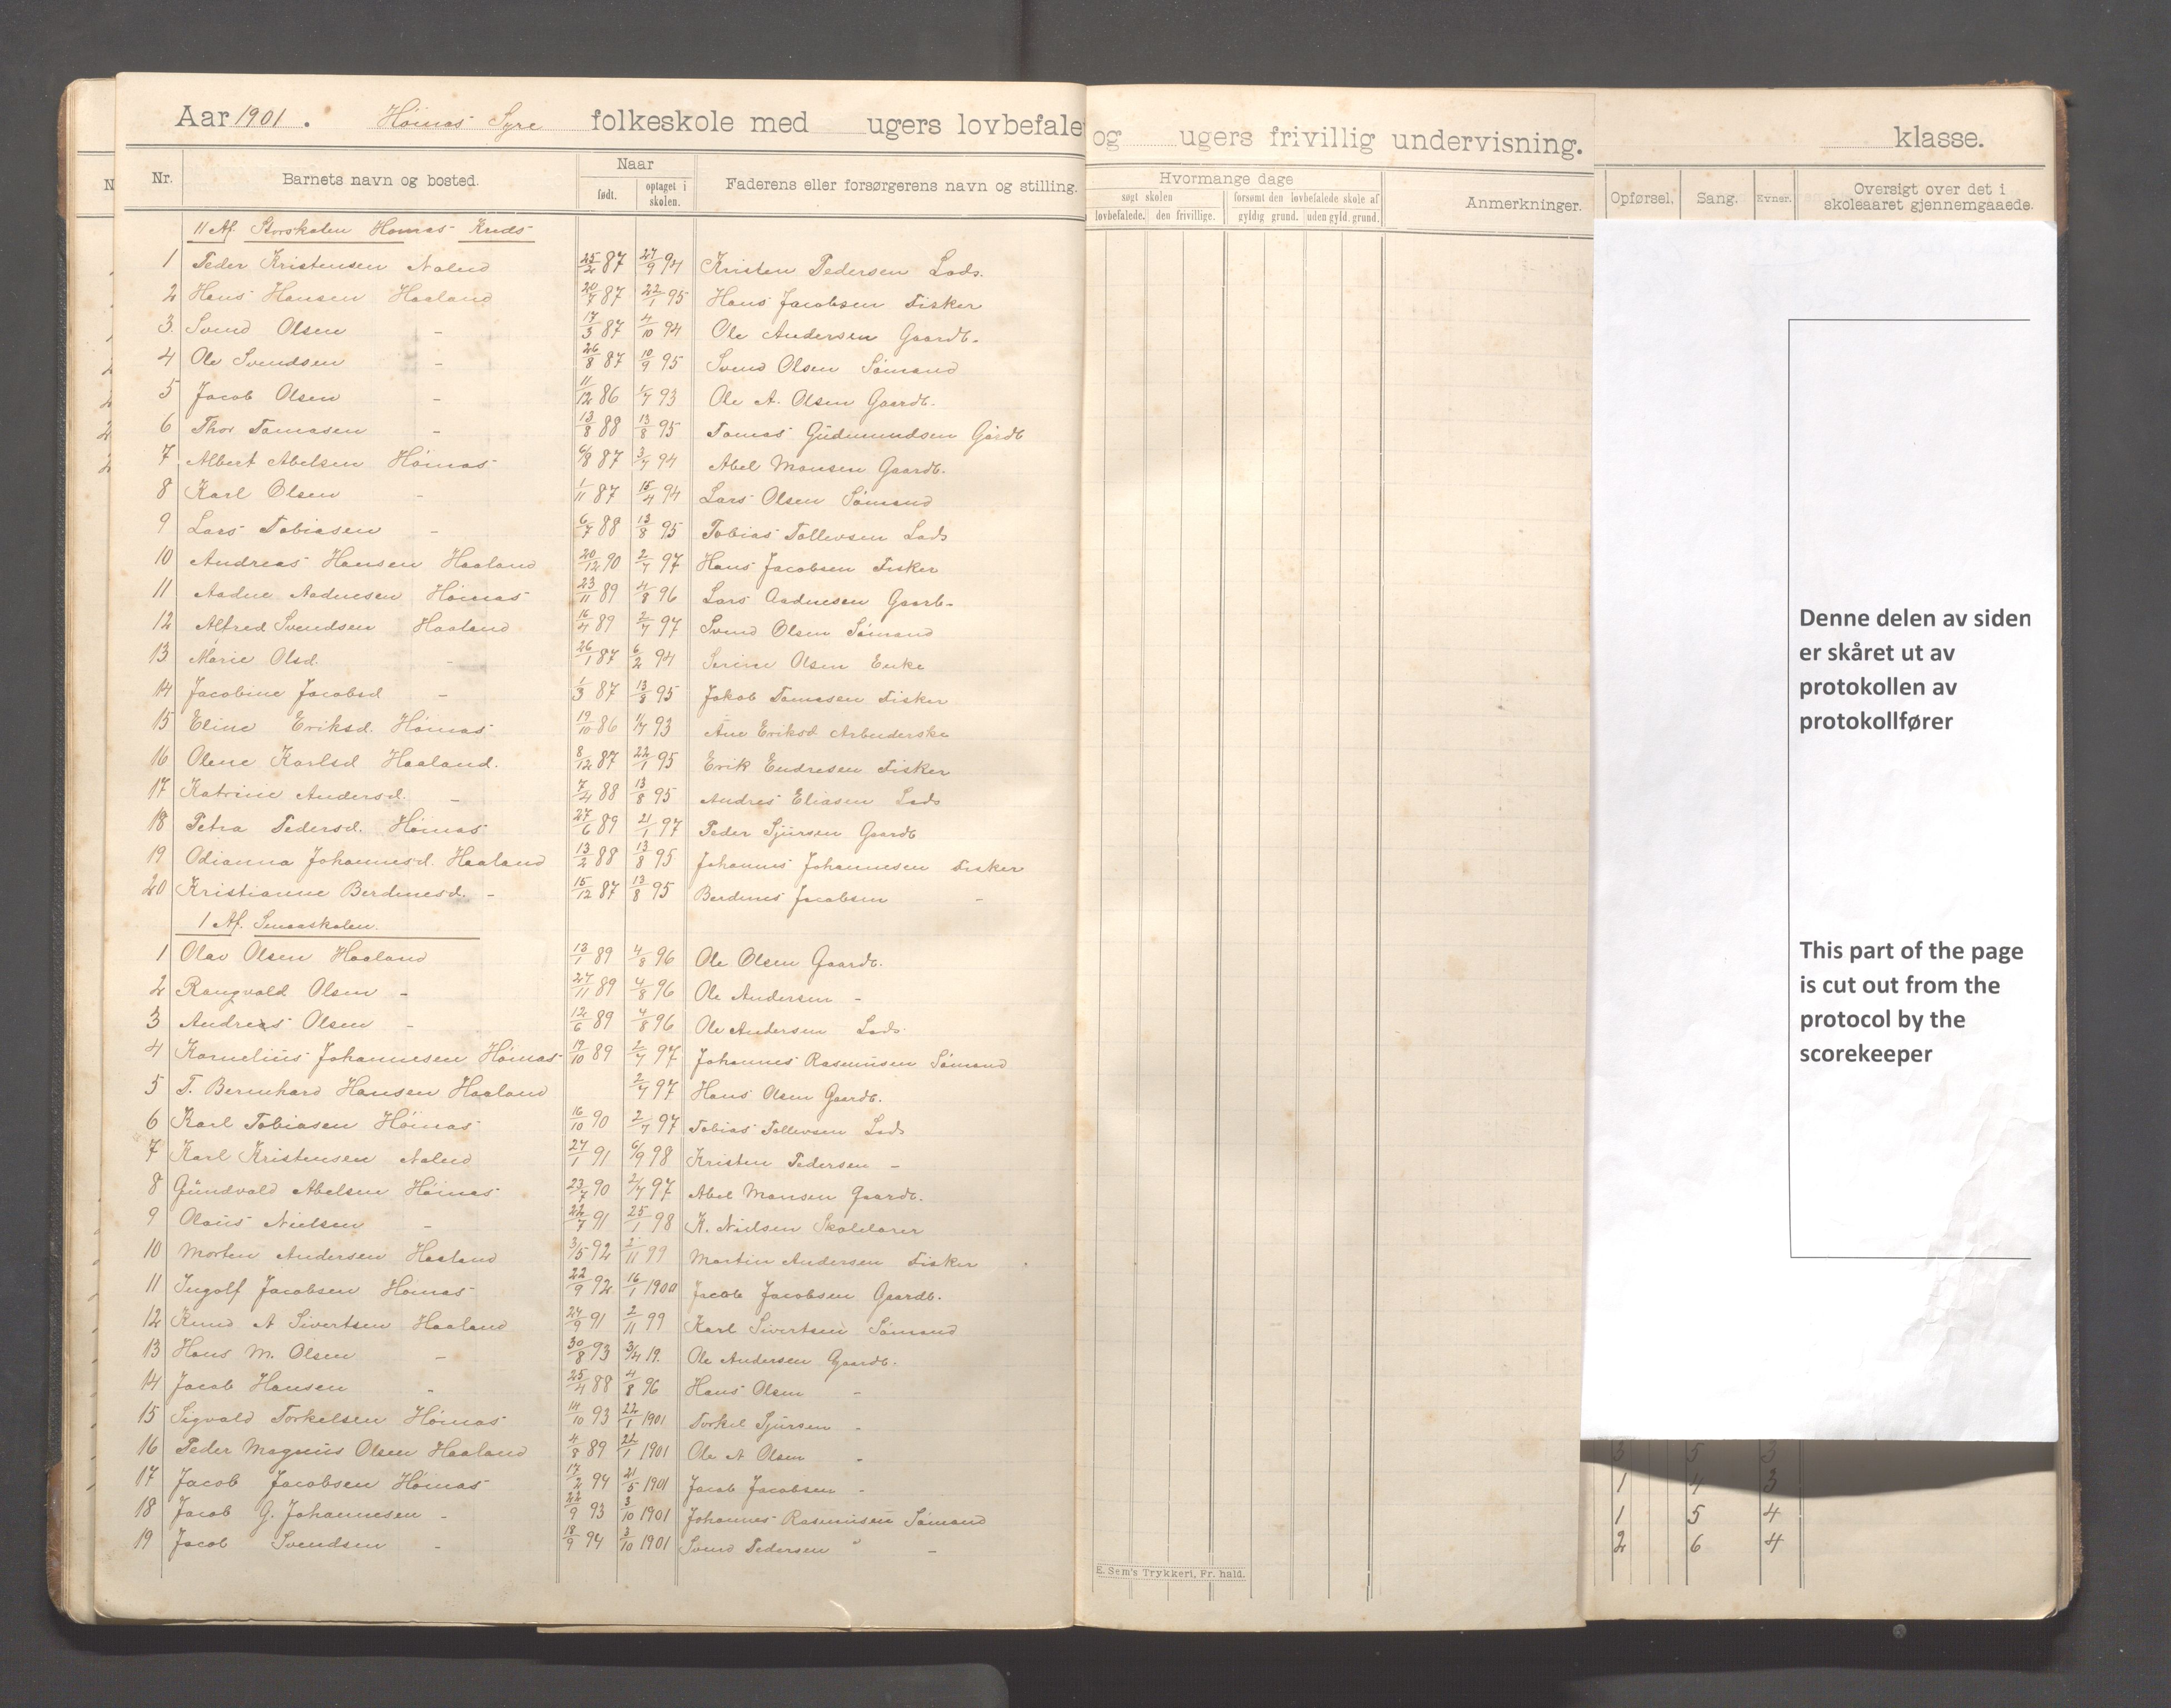 Aar 1901. Höines Syre folkeskole med ugers lovbefale og ugers frivillig undervisning. klasse.
Nr. Barnets navn og bosted. Naar født. optaget i skolen. Faderens eller forsørgerens navn og stilling. Hvormange dage søgt skolen lovbefalede. den frivillige. forsømt den lovbefalede skole af gyldig grund. uden gyld. grund. Anmerkninger. Opførsel. Sang. Evner. Oversigt over det i skoleaaret gjennemgaaede.
II Af. Storskolen Höines Kreds
1 Peder Kristensen Nalend 25/2 87 27/9 94 Kristen Pedersen Lods.
2 Hans Hansen Haaland 20/7 87 22/1 95 Hans Jacobsen Fisker
3. Svend Olsen - 17/3 87 4/10 94 Ole Andersen Gaardb.
4 Ole Svendsen - 26/8 87 10/9 95 Svend Olsen Sömand
5 Jacob Olsen - 11/12 86 1/7 93 Ole A. Olsen Gaardb.
6 Thor Tomasen - 13/8 88 13/8 95 Tomas Gudmundsen Gårdb
7 Albert Abelsen Höines 6/8 87 3/7 94 Abel Monsen Gaardb.
8 Karl Olsen - 1/11 87 15/4 94 Lars Olsen Sömand
9 Lars Tobiasen - 6/7 88 13/8 95 Tobias Tollevsen Lods
10 Andreas Hansen Haaland 20/12 90 2/7 97 Hans Jacobsen Fisker
11 Aadne Aadnesen Höines 23/11 89 4/8 96 Lars Aadnesen Gaarb.
12 Alfred Svendsen Haaland 16/4 89 2/7 97 Svend Olsen Sömand
13 Marie Olsd. - 26/1 87 6/2 94 Serine Olsen Enke
14 Jacobine Jacobsd - 1/3 87 13/8 95 Jakob Tomasen Fisker
15 Eline Eriksd. Höines 19/10 86 1/7 93 Ane Eriksd Arbiderske
16 Olene Karlsd Haaland. 8/12 87 22/1 95 Erik Endresen Fisker
17 Katrine Andersd. - 7/4 88 13/8 95 Andres Eliasen Lods
18 Petra Pedersd. Höines 27/6 89 21/1 97 Peder Sjursen Gaardb
19 Odianna Johannesd. Haaland 13/2 88 13/8 95 Johannes Johannesen Fisker
20 Kristianne Berdinesd. - 15/12 87 13/8 95 Berdines Jacobsen -
I Af. Smaaskolen.
1 Olav Olsen Haaland 13/1 89 4/8 96 Ole Olsen Gaardb.
2 Rangvald Olsen - 27/11 89 4/8 96 Ole Andersen -
3 Andreas Olsen - 12/6 89 4/8 96 Ole Andersen Lods.
4 Kornelius Johannesen Höines 19/10 89 2/7 97 Johannes Rasmusen Sömand
5 T. Bernhard Hansen Haaland 2/7 97 Hans Olsen Gaardb.
6 Karl Tobiasen Höines 16/10 90 2/7 97 Tobias Tollevsen Lods
7 Karl Kristensen Nalend 27/1 91 6/9 98 Kristen Pedersen -
8 Gundvald Abelsen Höines 23/7 90 2/7 97 Abel Monsen Gaardb.
9 Olaus Nielsen - 22/7 91 25/1 98 K. Nielsen Skolelærer
10 Morten Andersen Haaland 3/5 92 2/11 99 Martin Andersen Fisker
11 Ingolf Jacobsen Höines 22/9 92 16/1 1900 Jacob Jacobsen Gaardb.
12 Knud A Sivertsen Haaland 24/9 91 2/11 99 Karl Sivertsen Sömand
13 Hans M. Olsen - 30/8 93 3/4 19. Ole Andersen Gaardb.
14 Jacob Hansen - 25/4 88 4/8 96 Hans Olsen -
15 Sigvald Torkelsen Höines 14/10 93 22/1 1901 Torkel Sjursen -
16 Peder Magnus Olsen Haaland 4/8 89 22/1 1901 Ole A Olsen - 3 5 3
17 Jacob Jacobsen Höines 17/2 94 21/5 1901 Jacob Jacobsen - 1 4 3
18 Jacob G. Johannesen - 22/9 93 3/10 1901 Johannes Rasmusen Sömand 1 5 4
19 Jacob Svendsen - 18/9 94 3/10 1901 Svend Pedersen - 2 6 4
E. Sem's Trykkeri, Fr. hald.
Denne delen av siden
er skåret ut av
protokollen av
protokollfører
This part of the page
is cut out from the
protocol by the
scorekeeper